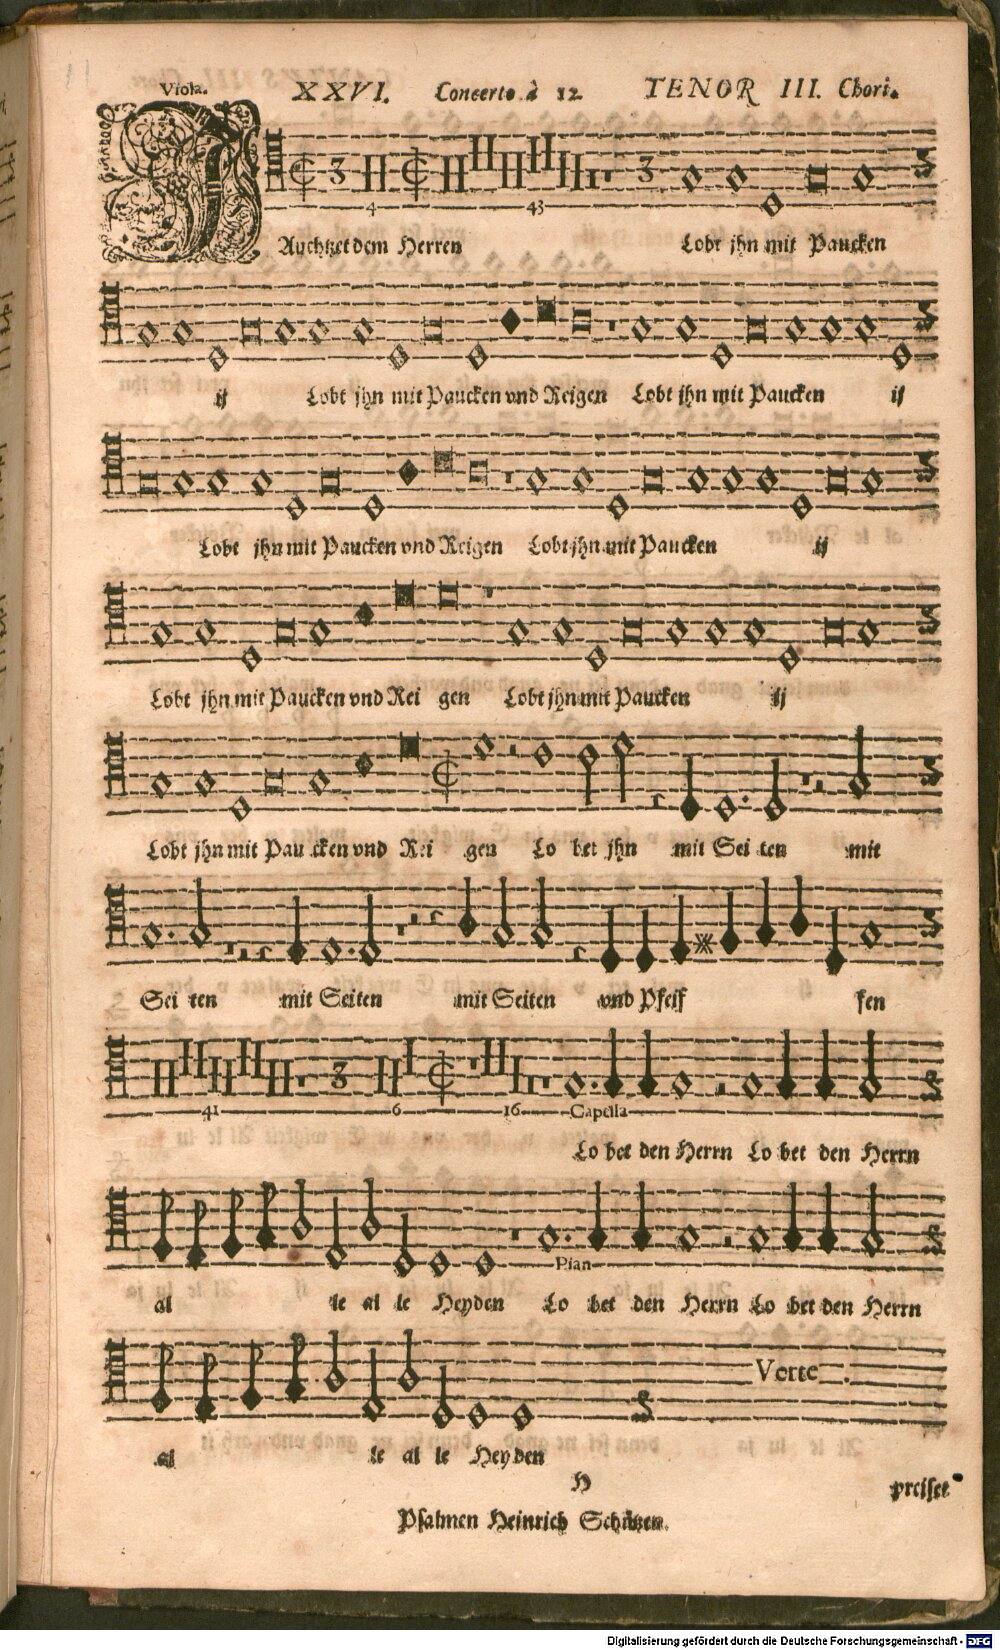 Viola. XXVI. Concerto à 12 TENOR III. Chori.
3 3
4 43
JAuchtzet dem Herren Lobt jhn mit Paucken
ij Lobt jhn mit Paucken vnd Reigen Lobt jhn mit Paucken ij
Lobt jhn mit Paucken vnd Reigen Lobt jhn mit Paucken ij
Lobt jhn mit Paucken vnd Rei gen Lobt jhn mit Paucken ij
Lobt jhn mit Pau cken vnd Rei gen Lo bet jhn mit Sei ten mit
Sei ten mit Seiten mit Seiten vnd Pfeif fen
3
41 6 16 Capella
Lo bet den Herrn Lo bet den Herrn
Pian
al le al le Heyden Lo bet den Herrn Lo bet den Herrn
Verte.
al le al le Heyden
H preiset
Psalmen Heinrich Schützen.
Digitalisierung gefördert durch die Deutsche Forschungsgemeinschaft - DFG